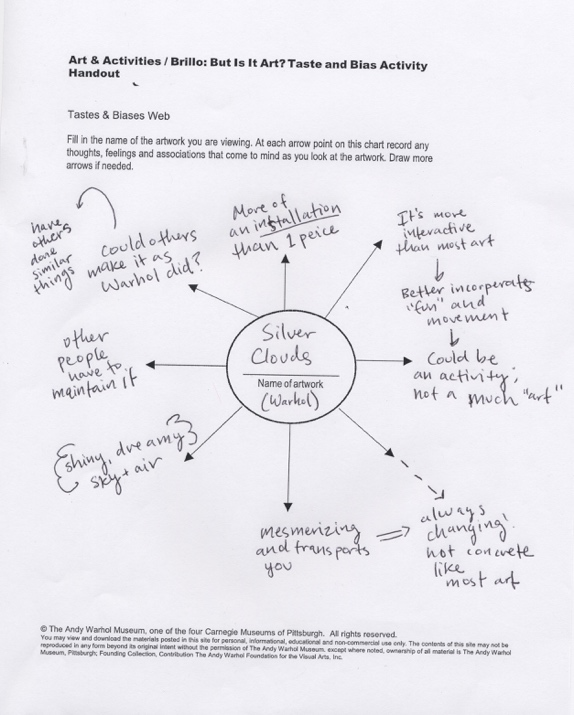 Art & Activities / Brillo: But Is It Art? Taste and Bias Activity
Handout
Tastes & Biases Web
Fill in the name of the artwork you are viewing. At each arrow point on this chart record any
thoughts, feelings and associations that come to mind as you look at the artwork. Draw more
arrows if needed.
have
others
done
similar
things
could others
make it as
Warhol did?
More of
an installation
than 1 peice
It's more
interactive
than most art
Better incorperates
"fun" and
movement
Could be
an activity;
not a much "art"
other
people
have to
maintain it
Silver
Clouds
Name of artwork
(Warhol)
{shiny, dreamy}
sky + air
mesmerizing
and transports
you
always
changing!
not concrete
like
most art
© The Andy Warhol Museum, one of the four Carnegie Museums of Pittsburgh. All rights reserved.
You may view and download the materials posted in this site for personal, informational, educational and non-commercial use only. The contents of this site may not be
reproduced in any form beyond its original intent without the permission of The Andy Warhol Museum, except where noted, ownership of all material is The Andy Warhol
Museum, Pittsburgh; Founding Collection, Contribution The Andy Warhol Foundation for the Visual Arts, Inc.